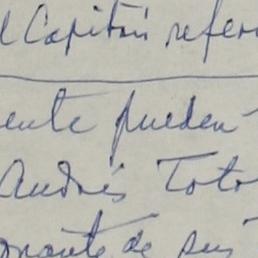 l Capitán refer
ente pueden
Andrés Toto
de sus